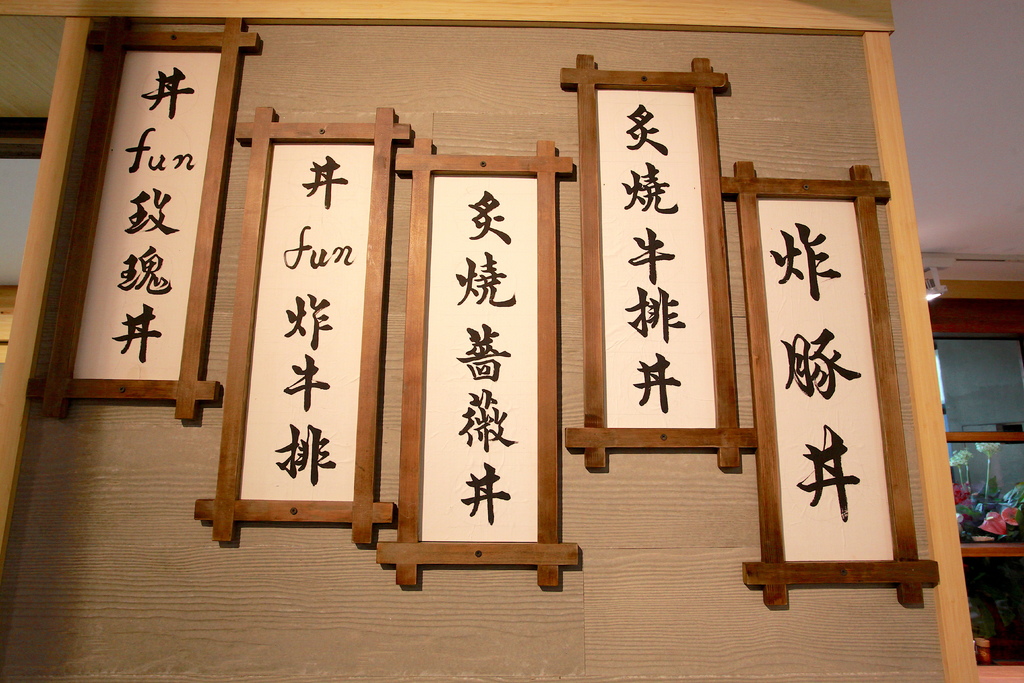 丼fun玫瑰丼
丼fun炸牛排
炙燒薔薇丼
炙燒牛排丼
炸豚丼